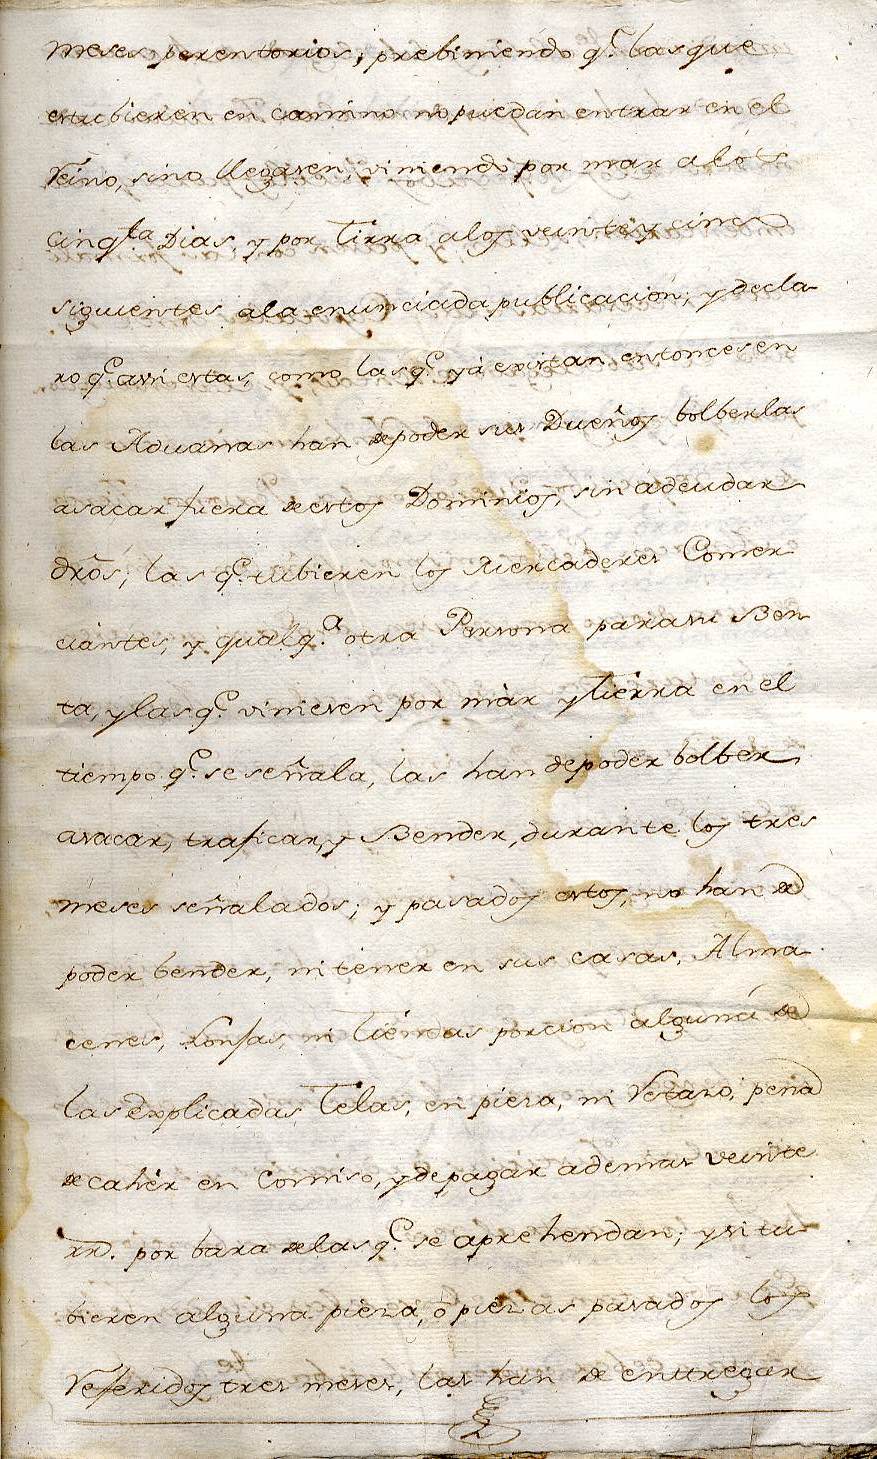 meses perentorios, prebiniendo q.e las que
estubieren en camino no puedan entrar en el
Reino, sino llegaren, viniendo por mar a los
cinq.ta Dias, y por Tierra alos veinte y cinco
siguientes ala enunciada publicacion; y decla-
ro q.e assi estas, como las q.e ya existan entonces en
las Aduanas han de poder sus Dueños bolberlas
asacar fuera de estos Dominios, sin adeudar
dros; las q.e tubieren los Mercaderes Comer
ciantes, y qualq.a otra Persona para su Ben
ta, y las q.e vinieren por mar y Tierra en el
tiempo q.e se señala, las han de poder bolber
asacar, traficar, y Bender, durante los tres
meses señalados; y pasados estos, no han de
poder bender, ni tener en sus casas, Alma
cenes, Lonjas, ni Tiendas porcion alguna de
las Explicadas Telas, en pieza, ni Retazo, pena
de caher en Comiso, y de pagar ademas veinte
rr.d por bara de las q.e se aprehendan; y si tu-
bieren alguna pieza, o piezas pasados los
Referidos tres meses, las han de entregar